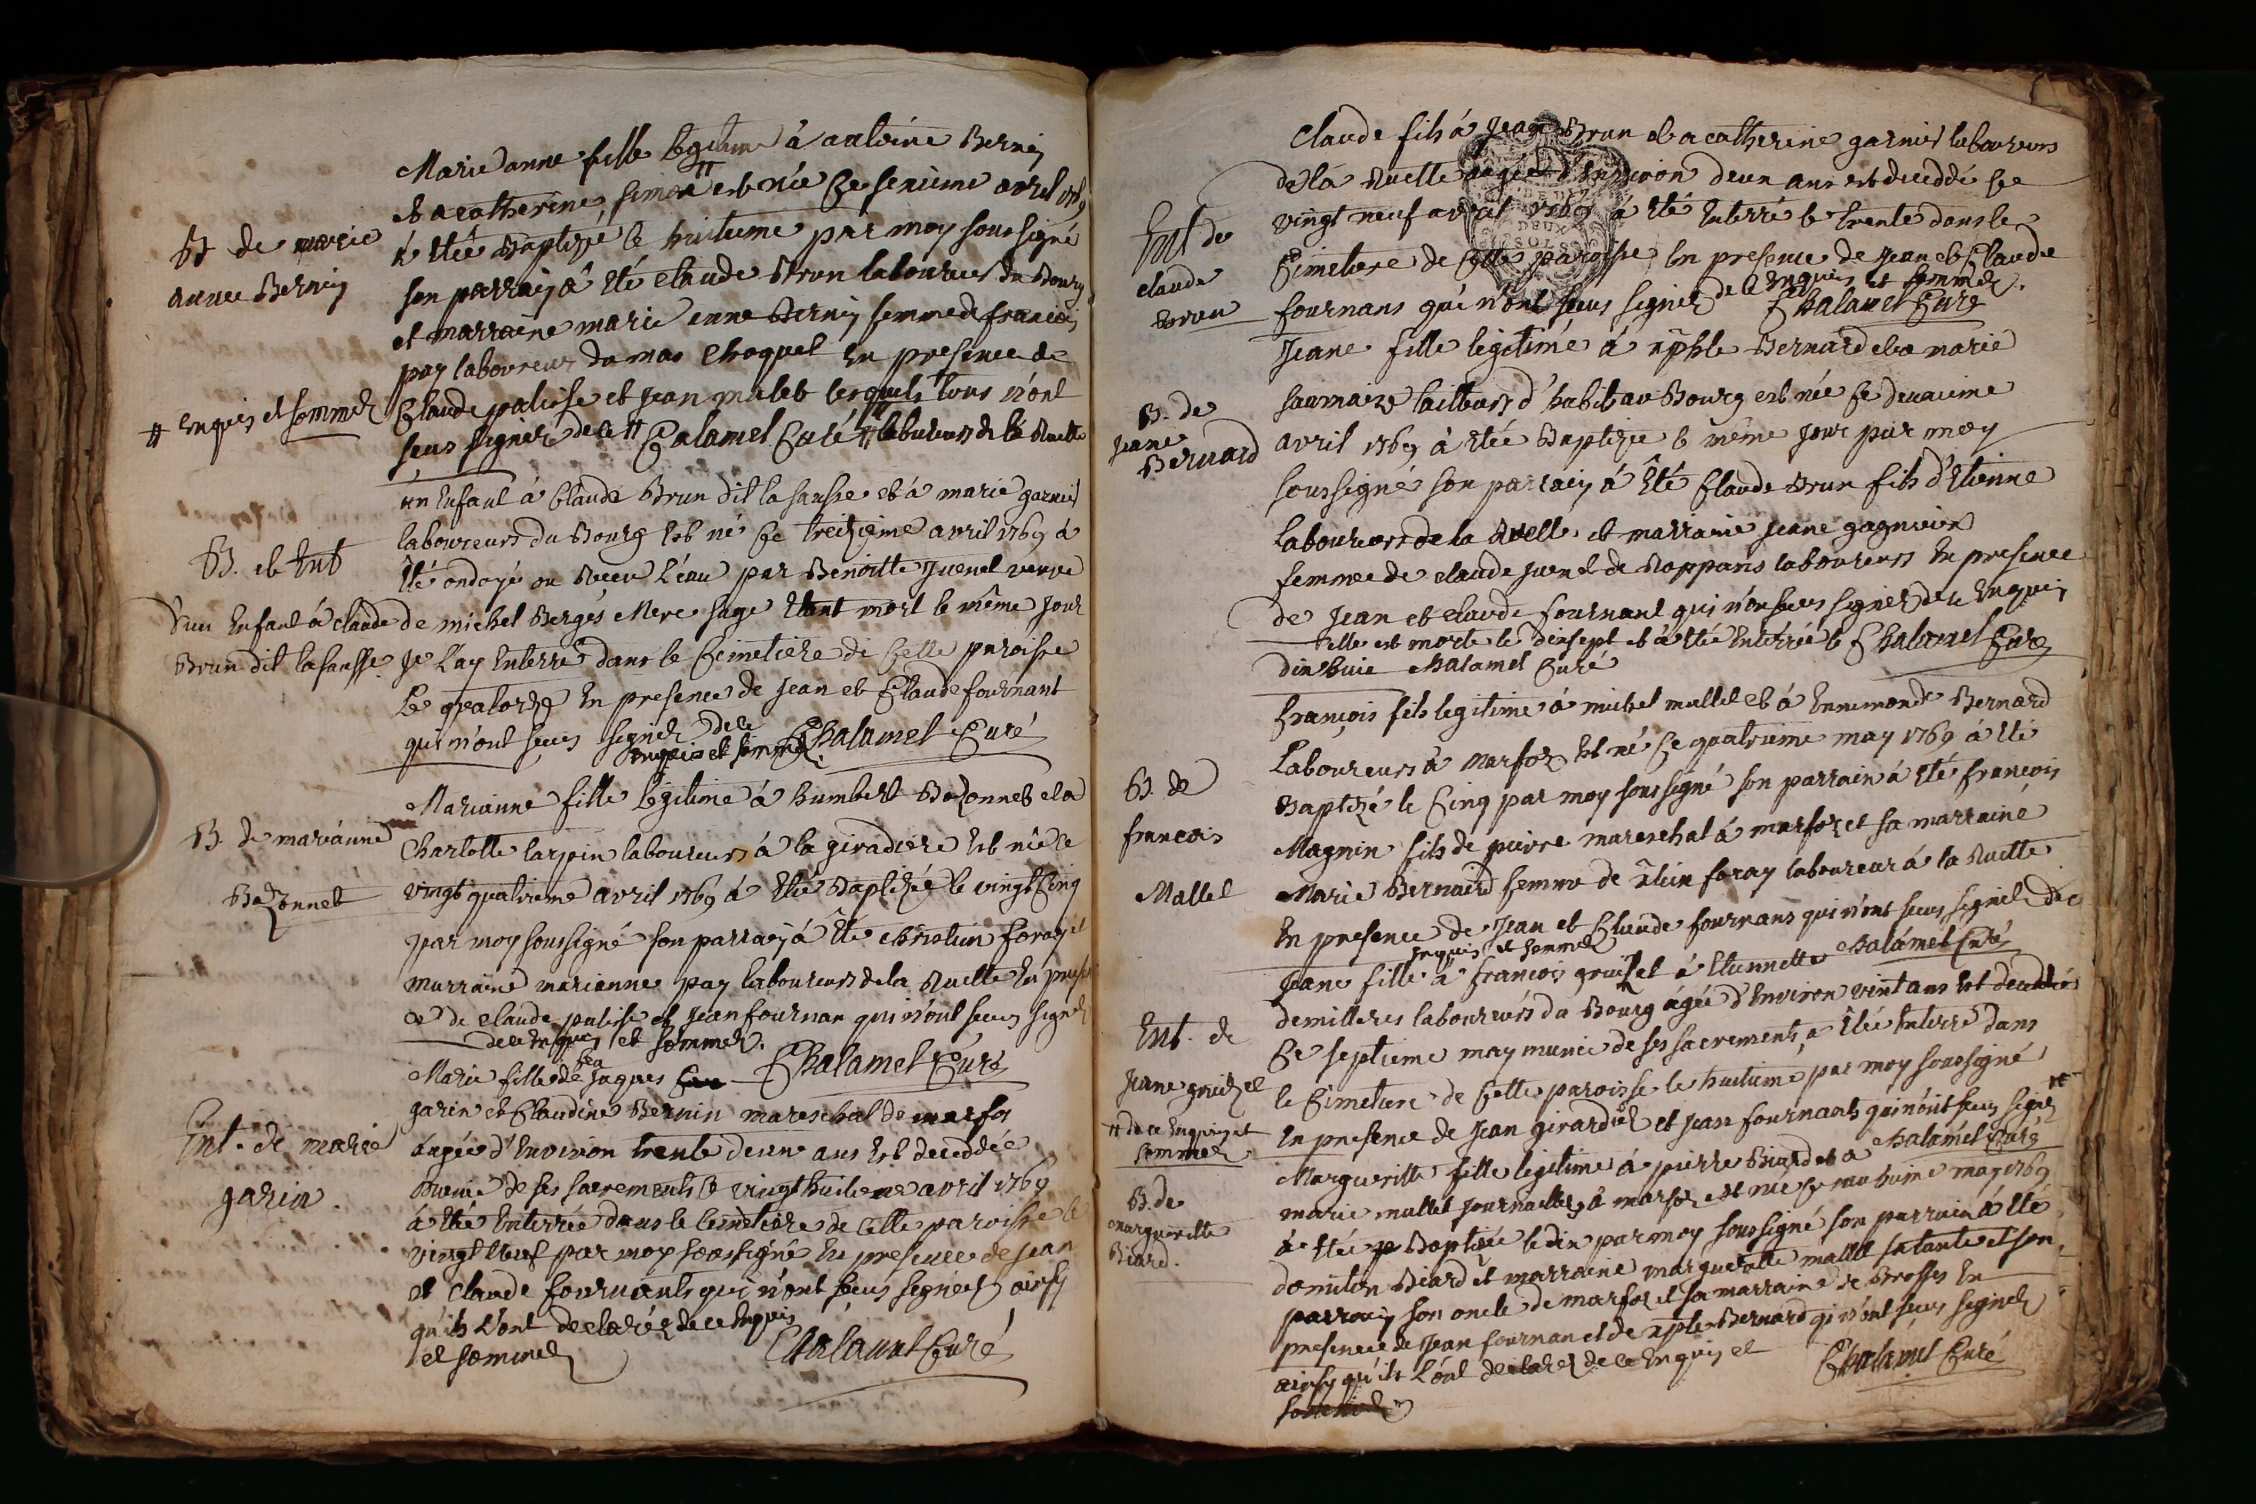 B de marie
anne Berniz
# enquis et sommez
Marie anne fille legitime à antoine Berniz
et a catherine simon # est née ce sixieme avril 1769
à etée Baptizé le huitieme par moy soussigné
son parrain à eté claude Brun laboureur du Bourg
et marraine marie anne Berniz femme de francois
pay laboureur du mas choquet en presence de
Claude palisse et jean mulet lesquels tous n'ont
sceus signer de ce # Calamel Curé # laboureurs de la Ruette
B. et Ent
d'un Enfant à claude
Brun dit lasausse
un Enfant à Claude Brun dit la sausse et à marie garnier
laboureurs du Bourg est né ce treizieme avril 1769 à
Eté ondoyé ou Receu l'eau par Benoitte Juenet veuve
de michel Berges Mere sage Etant mort le même Jour
Je L'ay Enterré dans le Cimetiere de Cette paroisse
Le quatorze En presence de Jean et Claude fournant
qui n'ont sceus signer de ce Chalamel Curé
Enquis et sommez.
B. de marianne
Bozonnet
Marianne fille legitime à humbert Bozonnet et a
Charlotte larpin laboureurs à la giradiere est née le
vingt quatrieme avril 1769 à Etée Baptizée le vingt Cinq
par moy soussigné son parrain à Eté christin foray et
marraine marianne pay laboureurs de la Ruette En presen
ce de claude palisse et jean fournan qui n'ont sceus signer
de ce Enquis et sommez. Chalamel Curé
Ent. de marie
garin
Marie fille de Jaques
garin et Claudine Bernin mareschal de marfos
âagée d'Environ trente deux ans est deceddée
Munie de ses sacrements le vingt huitieme avril 1769
à Eté Enterrée dans le Cemetiere de Cette paroisse le
vingt neuf par moy soussigné En presence de jean
et claude fournants qui n'ont sceus signer ainsy
qu'ils L'ont declarés de ce Enquis
et sommez Chalamel Curé
Ent de
claude
Brun
Claude fils à Jean Brun et a catherine garnier laboureurs
de la Ruette agée d'Environ deux ans est deceddé le
vingt neuf avril 1769 à eté Enterré le trente dans le
Cimetiere de Cette paroisse En presence de Jean et Claude
fournans qui n'ont sceus signer de ce Enquis et sommez.
Chalamel Curé
DEUX
SOLS
B. de
Jeane
Bernard
Jeane fille legitime à xphle Bernard et a marie
saumaize tailleurs d'habit au Bourg est née ce deuxieme
avril 1769 à Etée Baptizée le même Jour par moy
soussigné son parrain à Eté Claude Brun fils d'Etienne
Laboureurs de la Ruette et marraine jeane gagnieux
femme de claude juenet de Roppans laboureurs En presence
de Jean et claude fournant qui n'on sceus signer de ce Enquis
Elle est morte le dixsept et à Etée Enterrée le Chalamel Curé
dix huit Chalamel Curé
B. de
francois
Mallet
François fils legitime à michel mallet et à Ennemonde Bernard
Laboureurs à Marfoz est né ce quatrieme may 1769 à Eté
Baptizé le Cinq par moy soussigné son parrain à Eté francois
Magnin fils de pierre mareschal à marfoz et sa marraine
Marie Bernard femme de xtein foray laboureur à la Ruette
En presence de Jean et Claude fournans qui n'ont sceus signer de ce
Enquis et sommez Chalamel Curé
Ent. de
Jeane gruizet
# de ce Enquis et
sommez
Jeane fille à francois gruizet à Etiennette
demilleres laboureurs du Bourg âgée d'Environ vint ans est deceddée
Ce septieme may munie de ses sacrements, a Etée Enterré dans
le Cimetiere de Cette paroisse le huitieme par moy soussigné
En presence de Jean girardier et jean fournants qui n'ont sceus signer #
Chalamel Curé
B. de
marguerette
Biard.
Margueritte fille legitime à pierre Biard et a
marie mallet journaillers à marfoz est née ce neuvieme may 1769
à Etée Baptisée le dix par moy soussigné son parrain à Eté
Domiton Biard et marraine marguerette mallet sa tante et son
parrain son oncle de marfoz et sa marraine de Brosses En
presence de Jean fournan et de xple Bernard qui n'ont sceus signer
ainsy qu'ils L'ont declarez de ce Enquis et Chalamel Curé